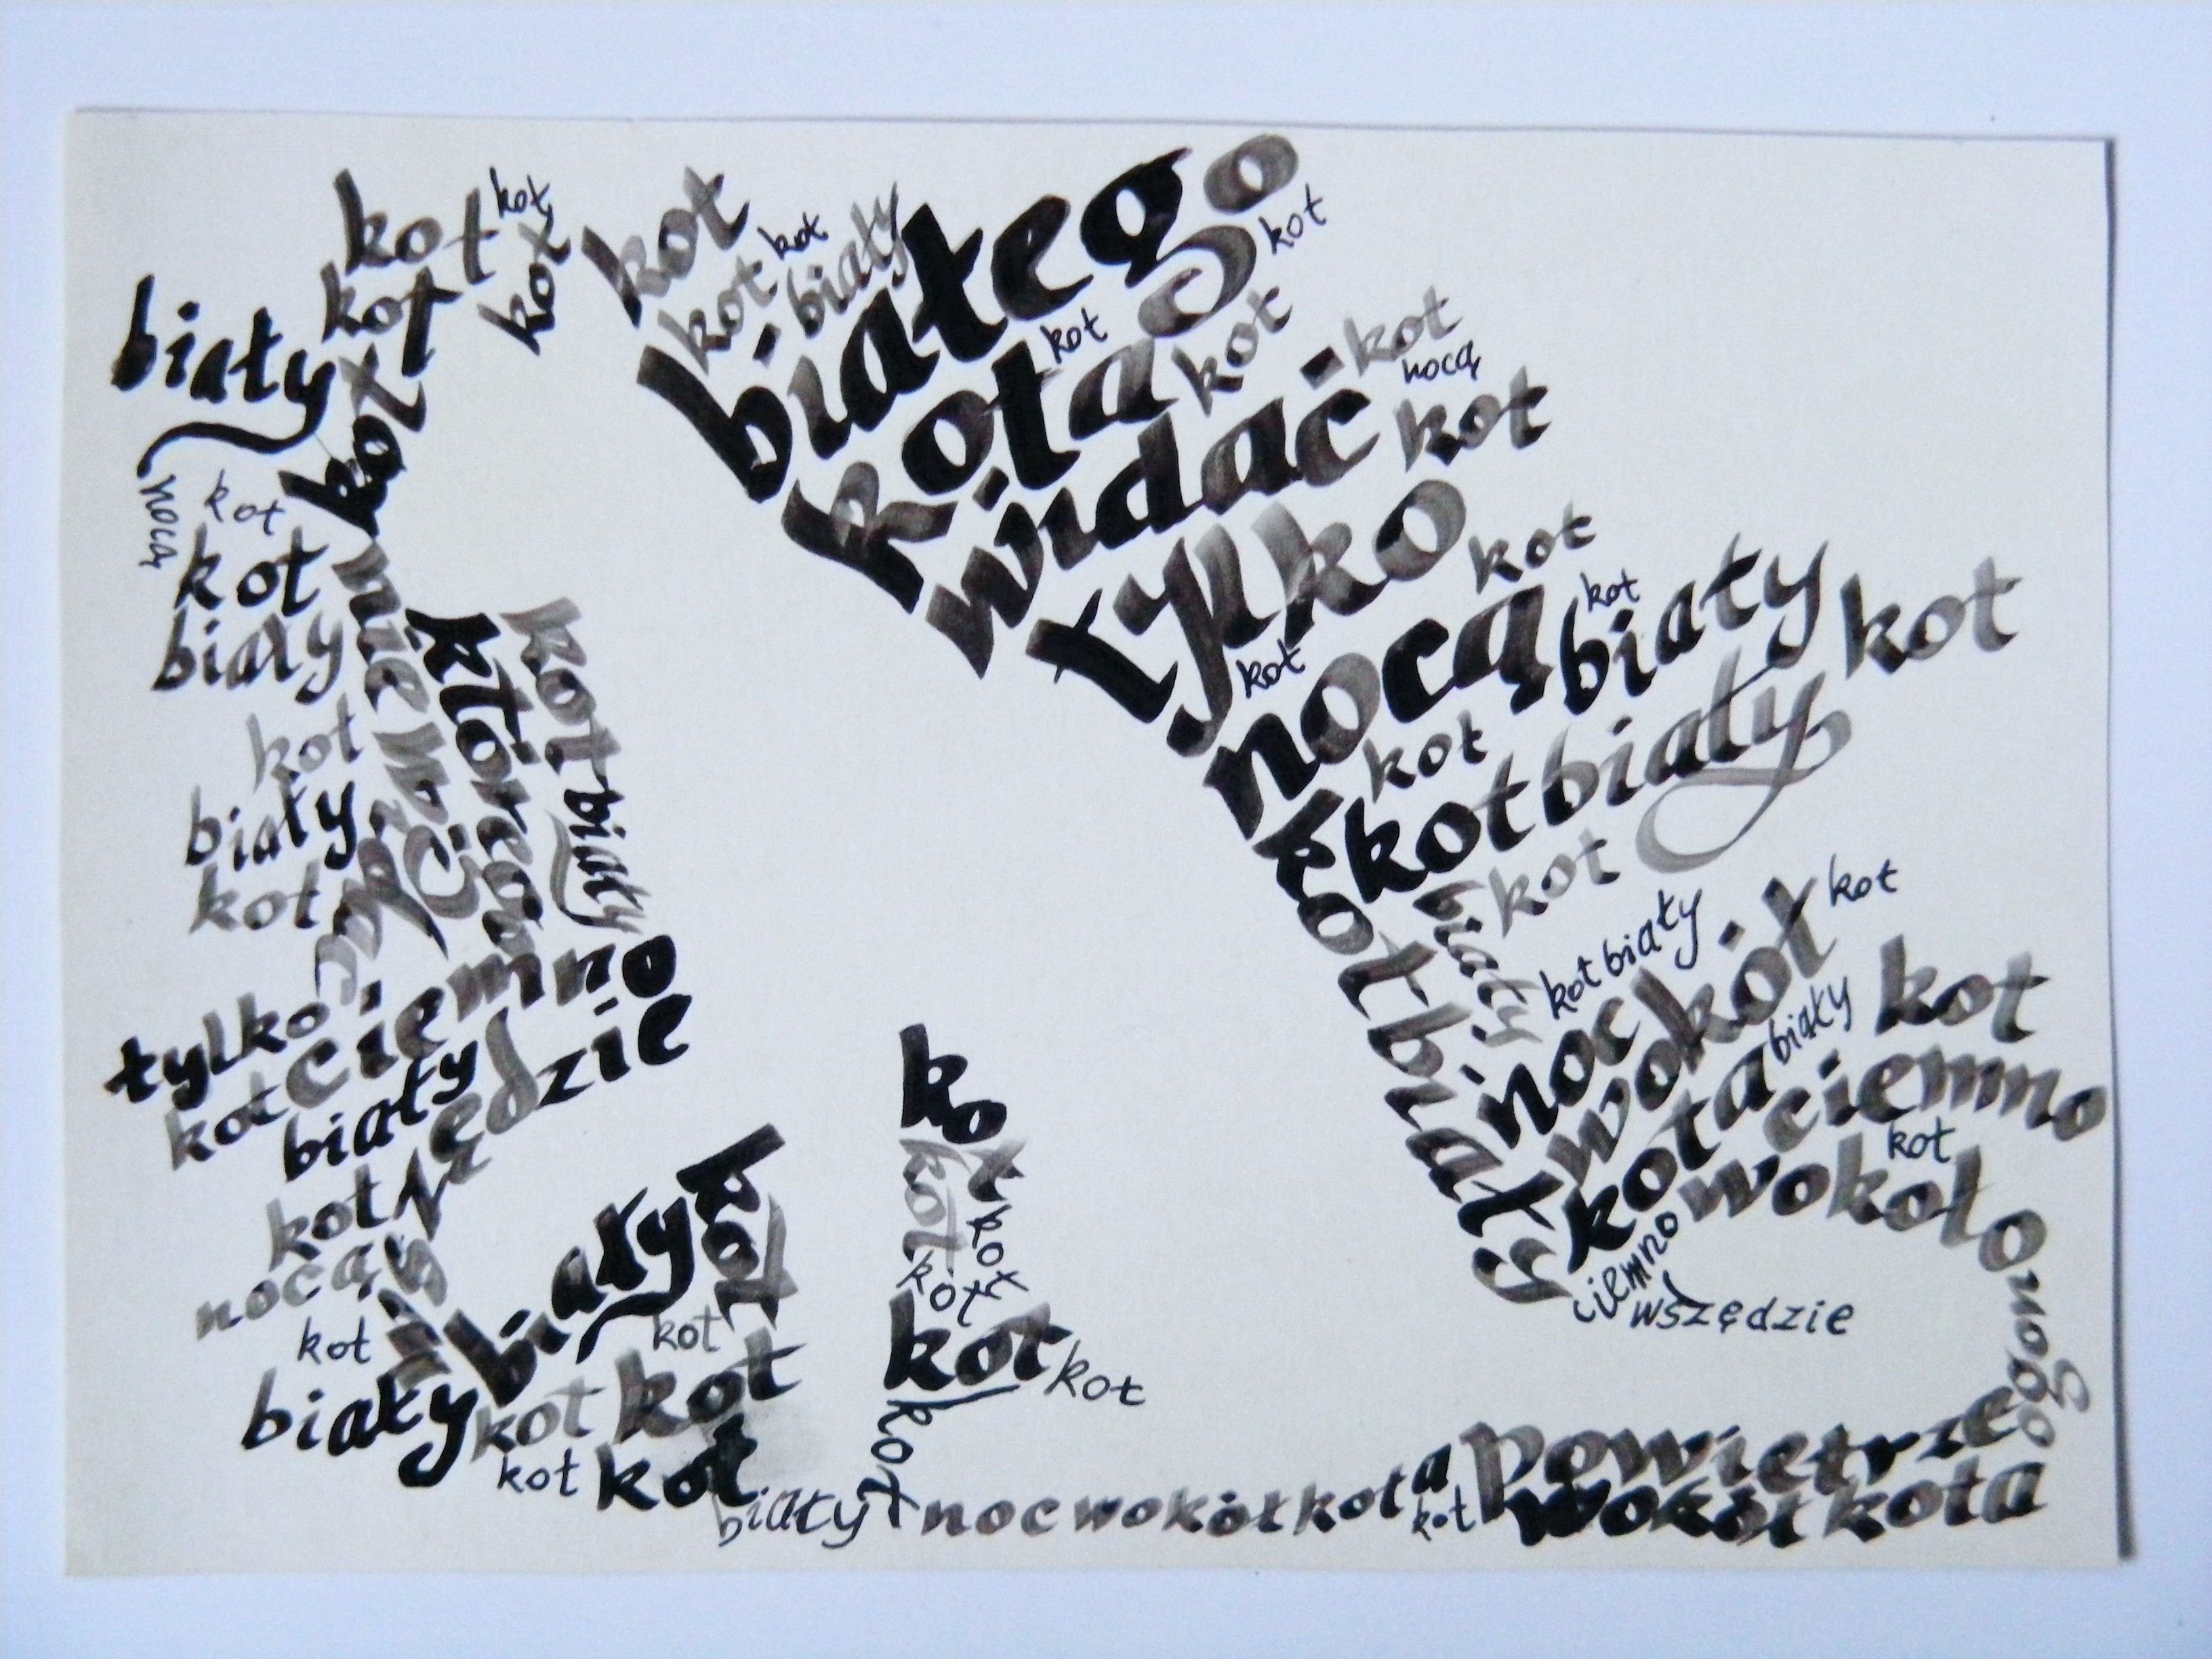 kot
kot
kot
kot
kot
biały
kot
nocą
kot
kot
biały
nie
którego
kot
biały
kot
biały
kot
ciemno
tylko
kot
biały
kot
nocą
kot
biały
biały
kot
kot
kot
kot
kot
kot
biały
kot
kot
kot
biały
białego
kot
kota
kot
kot
widać
kot
nocą
kot
tylko
kot
kot
nocą
kot
biały
kot
kot
kot biały
kot
kot biały
biały
kot biały
kot
noc wokół
kota
biały
kot
ciemno
kot
wokoło
ciemno
wszędzie
kot
kot
kot
kot
kot
kot
kot
noc wokół kota
kot
powietrze
wokół kota